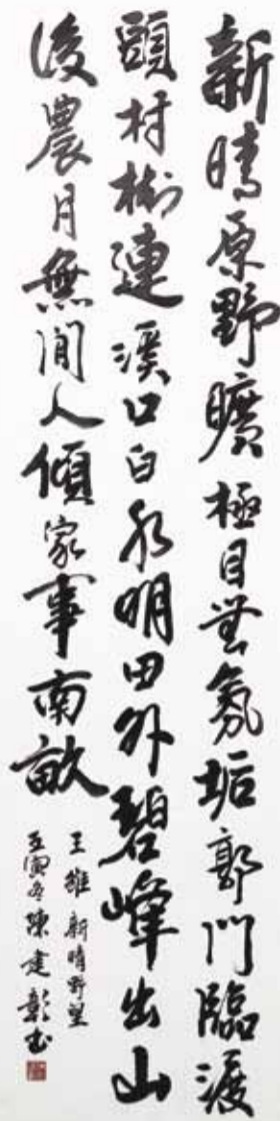 新晴原野曠極目無氛垢郭門臨渡
頭村樹連溪口白水明田外碧峰出山
後農月無閒人傾家事南畝
王維新晴野望
壬寅冬陳建彰書